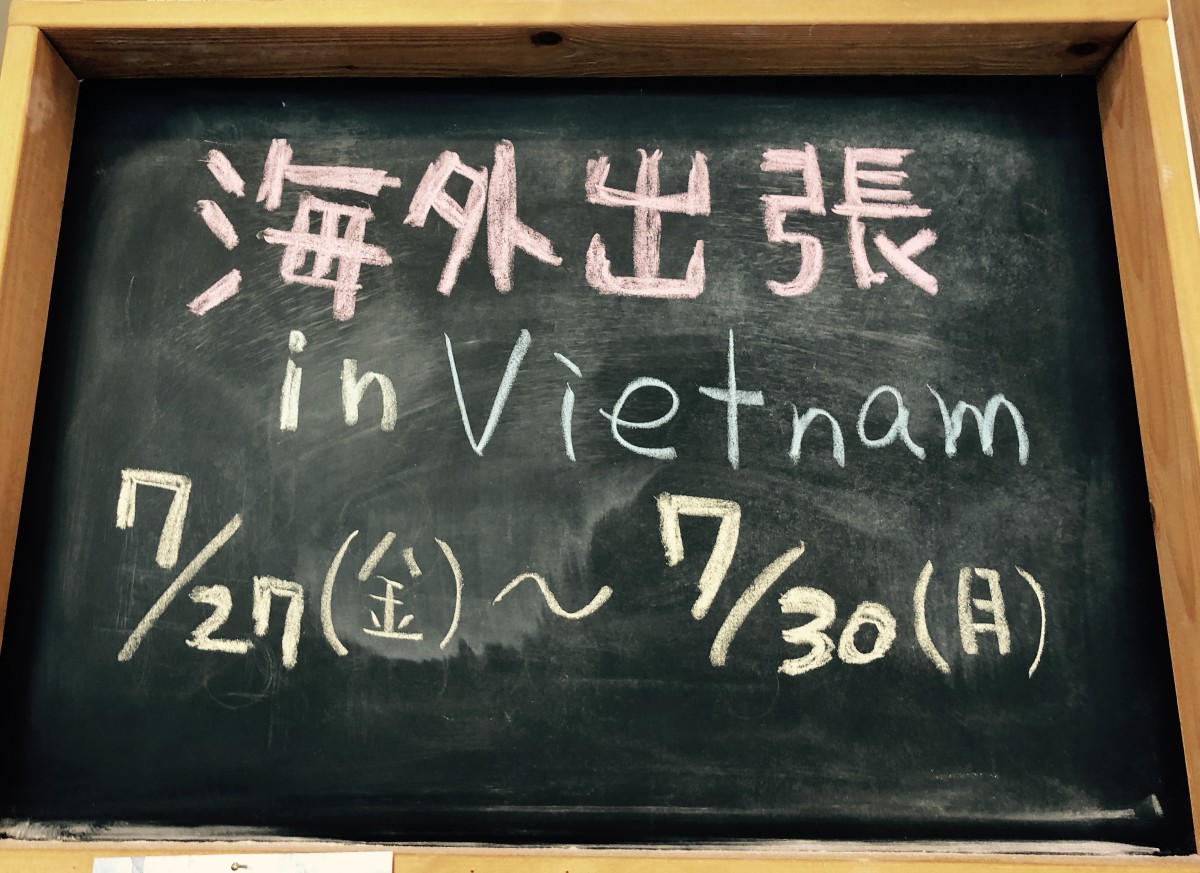 海外出張
in Vietnam
7/27(金)～7/30(月)